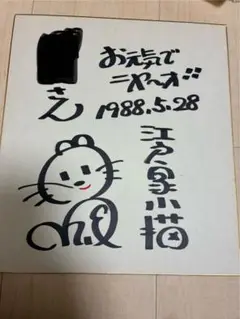 さん
お元気で
ニャ〜オ!!
1988.5.28
江戸家小猫